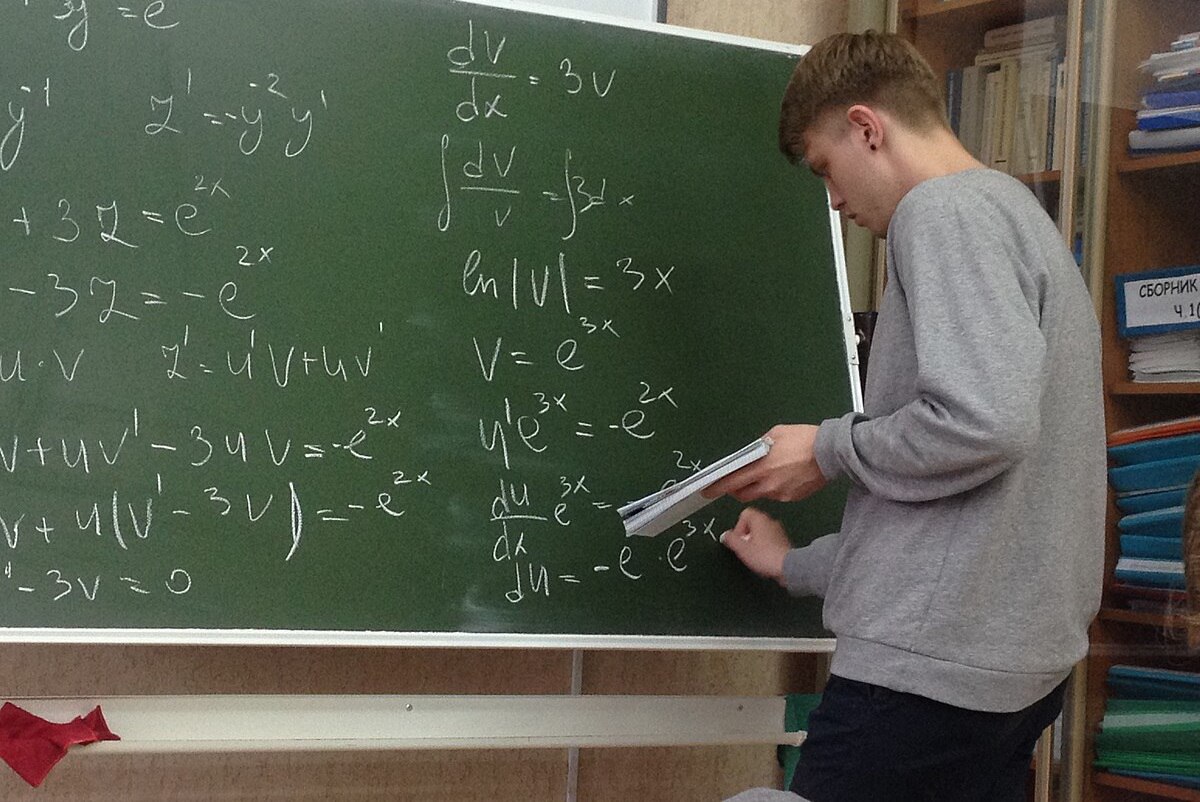 y = e
y⁻¹ z' = -y⁻² y'
+ 3z = e²ˣ
- 3z = - e²ˣ
u · v z' = u'v + uv'
v + uv' - 3uv = -e²ˣ
v + u(v' - 3v) = - e²ˣ
' - 3v = 0
dv/dx = 3v
∫ dv/v = ∫ 3dx
ln |v| = 3x
v = e³ˣ
u'e³ˣ = -e²ˣ
du/dx e³ˣ = - e²ˣ
du = -e · e³ˣ
СБОРНИК
Ч.1(